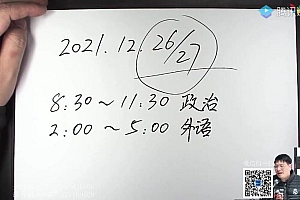 2021.12.26/27
8:30～11:30 政治
2:00～5:00 外语
腾讯